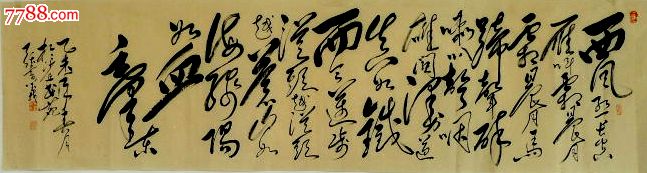 7788.com
西风烈长空
雁叫霜晨月
霜晨月马
蹄声碎
喇叭声咽
雄关漫道
真如铁
而今迈步
从头越从头
越苍山如
海残阳
如血
毛泽东
乙未年